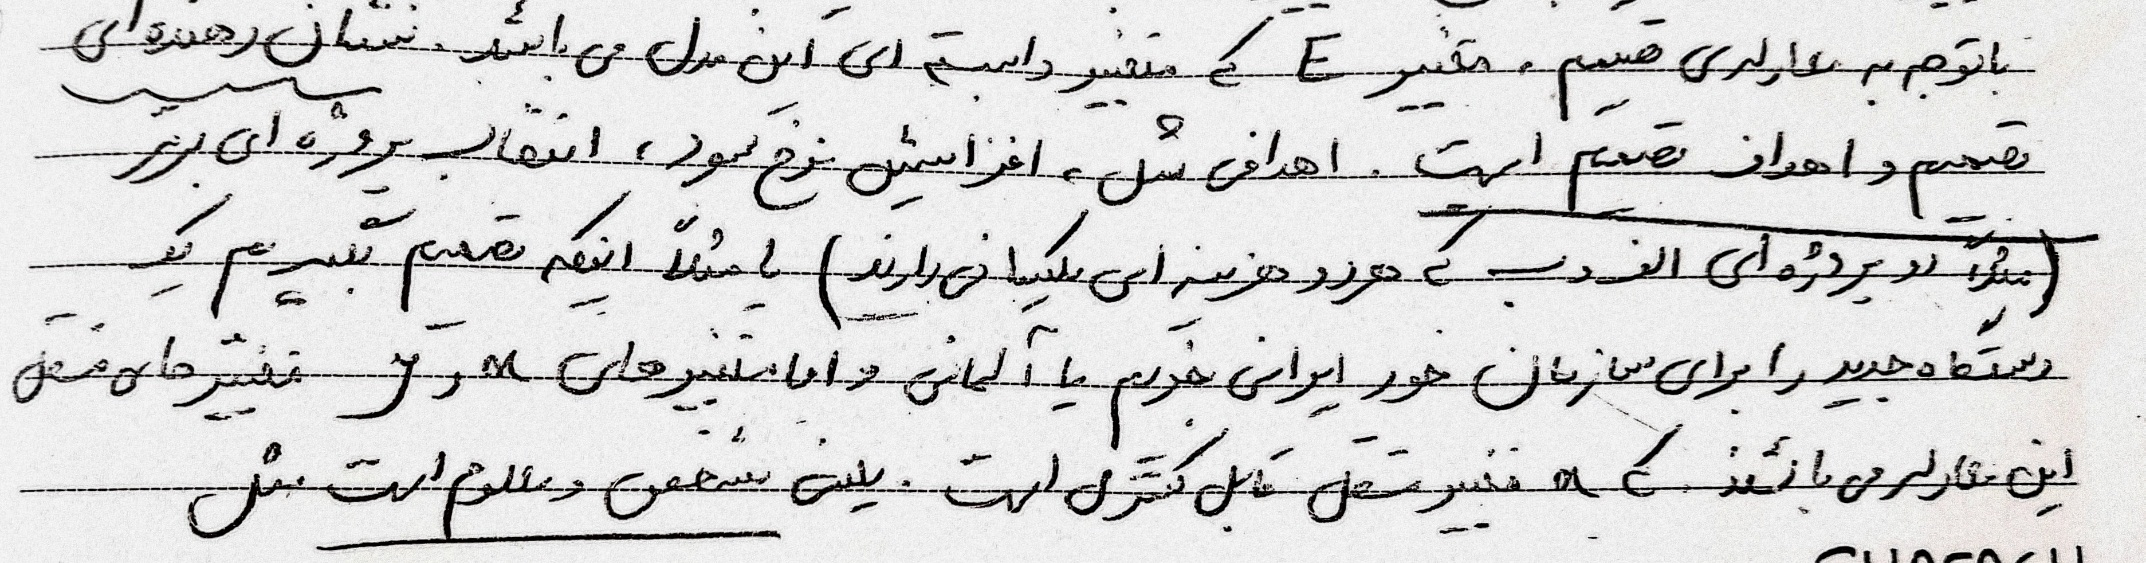 با توجه به معادله‌ی تصمیم، متغییر E که متغییر وابسته ای این مدل می باشد. نشان دهنده ای
تصمیم و اهداف تصمیم است. اهدافی مثل، افزاسیش نرخ سود، انتخاب پروژه ای برتر
(مثلاً دو پروژه ای الف و ب که هردو هزینه ای یکسانی دارند) یا مثلاً اینکه تصمیم بگیریم یک
دستگاه جدید را برای سازمان خود ایرانی بخریم یا آلمانی و اما متغییر های x و y متغییر های مستقل
این معادله می باشند. که x متغییر مستقل قابل کنترل است. یعنی مشخص و معلوم است مثل